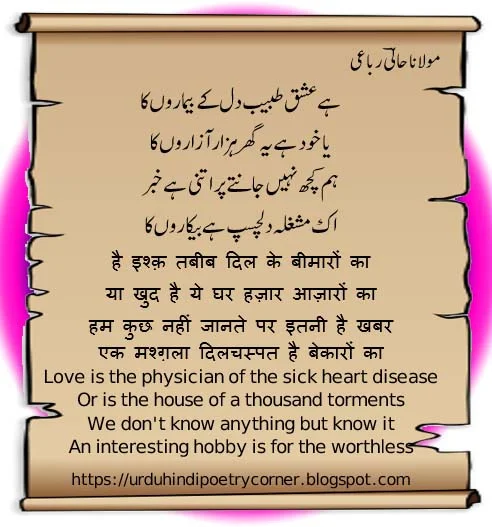 مولانا حالیؔ رباعی
ہے عشق طبیب دل کے بیماروں کا
یا خود ہے یہ گھر ہزار آزاروں کا
ہم کچھ نہیں جانتے پر اتنی ہے خبر
اک مشغلہ دلچسپ ہے بیکاروں کا
है इश्क़ तबीब दिल के बीमारों का
या खुद है ये घर हज़ार आज़ारों का
हम कुछ नहीं जानते पर इतनी है खबर
एक मश्ग़ला दिलचस्पत है बेकारों का
Love is the physician of the sick heart disease
Or is the house of a thousand torments
We don't know anything but know it
An interesting hobby is for the worthless
https://urduhindipoetrycorner.blogspot.com